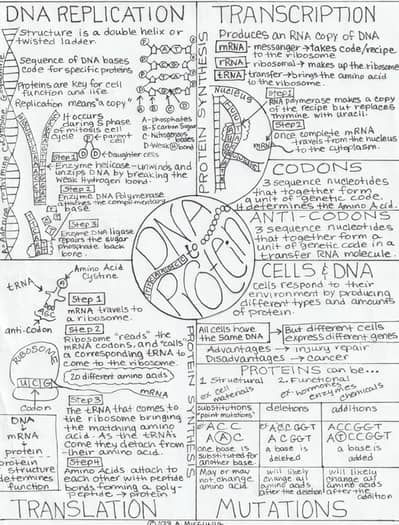 DNA REPLICATION
Structure is a double helix or
twisted ladder.
Sequence of DNA bases
code for specific proteins
Proteins are key for cell
function and life.
Replication means "a copy"
It occurs
during S phase
of mitosis cell
cycle
parent
cell
daughter cells
A-phosphates
B-5 carbon sugar
C-Nitrogenous
bases
D-Weak H bond
Step 1
Enzyme helicase-unwinds and
unzips DNA by breaking the
weak Hydrogen bond.
Step 2
Enzyme DNA Polymerase
attaches the complimentary
base
Step 3
Enzyme DNA ligase
repairs the sugar
phosphate back
bone.
PROTEIN SYNTHESIS
TRANSCRIPTION
Produces an RNA copy of DNA
mRNA messanger→takes code/recipe
to the ribosome.
rRNA ribosomal→makes up the ribosome
tRNA transfer→brings the amino acid
to the ribosome.
Nucleus
Step 1
RNA polymerase makes a copy
of the recipe but replaces
thymine with uracil.
Step 2
Once complete mRNA
travels from the nucleus
to the cytoplasm.
CODONS
3 sequence nucleotides
that together form
a unit of "genetic code".
determines the Amino Acid.
ANTI-CODONS
3 sequence nucleotides
that together form a
unit of genetic code in a
transfer RNA molecule.
DNA
to
Protein
CELLS & DNA
Cells respond to their
environment by producing
different types and amounts
of protein.
All cells have
the same DNA
But different cells
express different genes
Advantages → injury repair
Disadvantages → cancer
PROTEINS can be...
1 Structural
ex cell
materials
2. Functional
ex hormones
enzymes
chemicals
substitutions
"point mutations"
deletions
additions
ACC
A A C
one base is
substituted for
another base.
ACCGGT
ACGGT
a base is
deleted
ACCGGT
ATCCGGT
a base is
added
May or may
not change
amino acid.
will likely
change all
amino acids
after the deletion
will likely
change all
amino acids
after the
addition
MUTATIONS
Amino Acid
Cystine
tRNA
anti-codon
Step 1
mRNA travels to
a ribosome.
Step 2
Ribosome "reads" the
mRNA codons, and "calls"
a corresponding tRNA to
come to the ribosome.
20 different amino acids
RIBOSOME
UCG
mRNA
Codon
Step 3
The tRNA that comes to
the ribosome bringing
the matching amino
acid. As the tRNAs
come they detach from
their amino acid.
Step 4
Amino Acids attach to
each other with peptide
bonds forming a poly-
peptide → protein
PROTEIN SYNTHESIS
DNA
mRNA
protein
protein
structure
determines
function
TRANSLATION